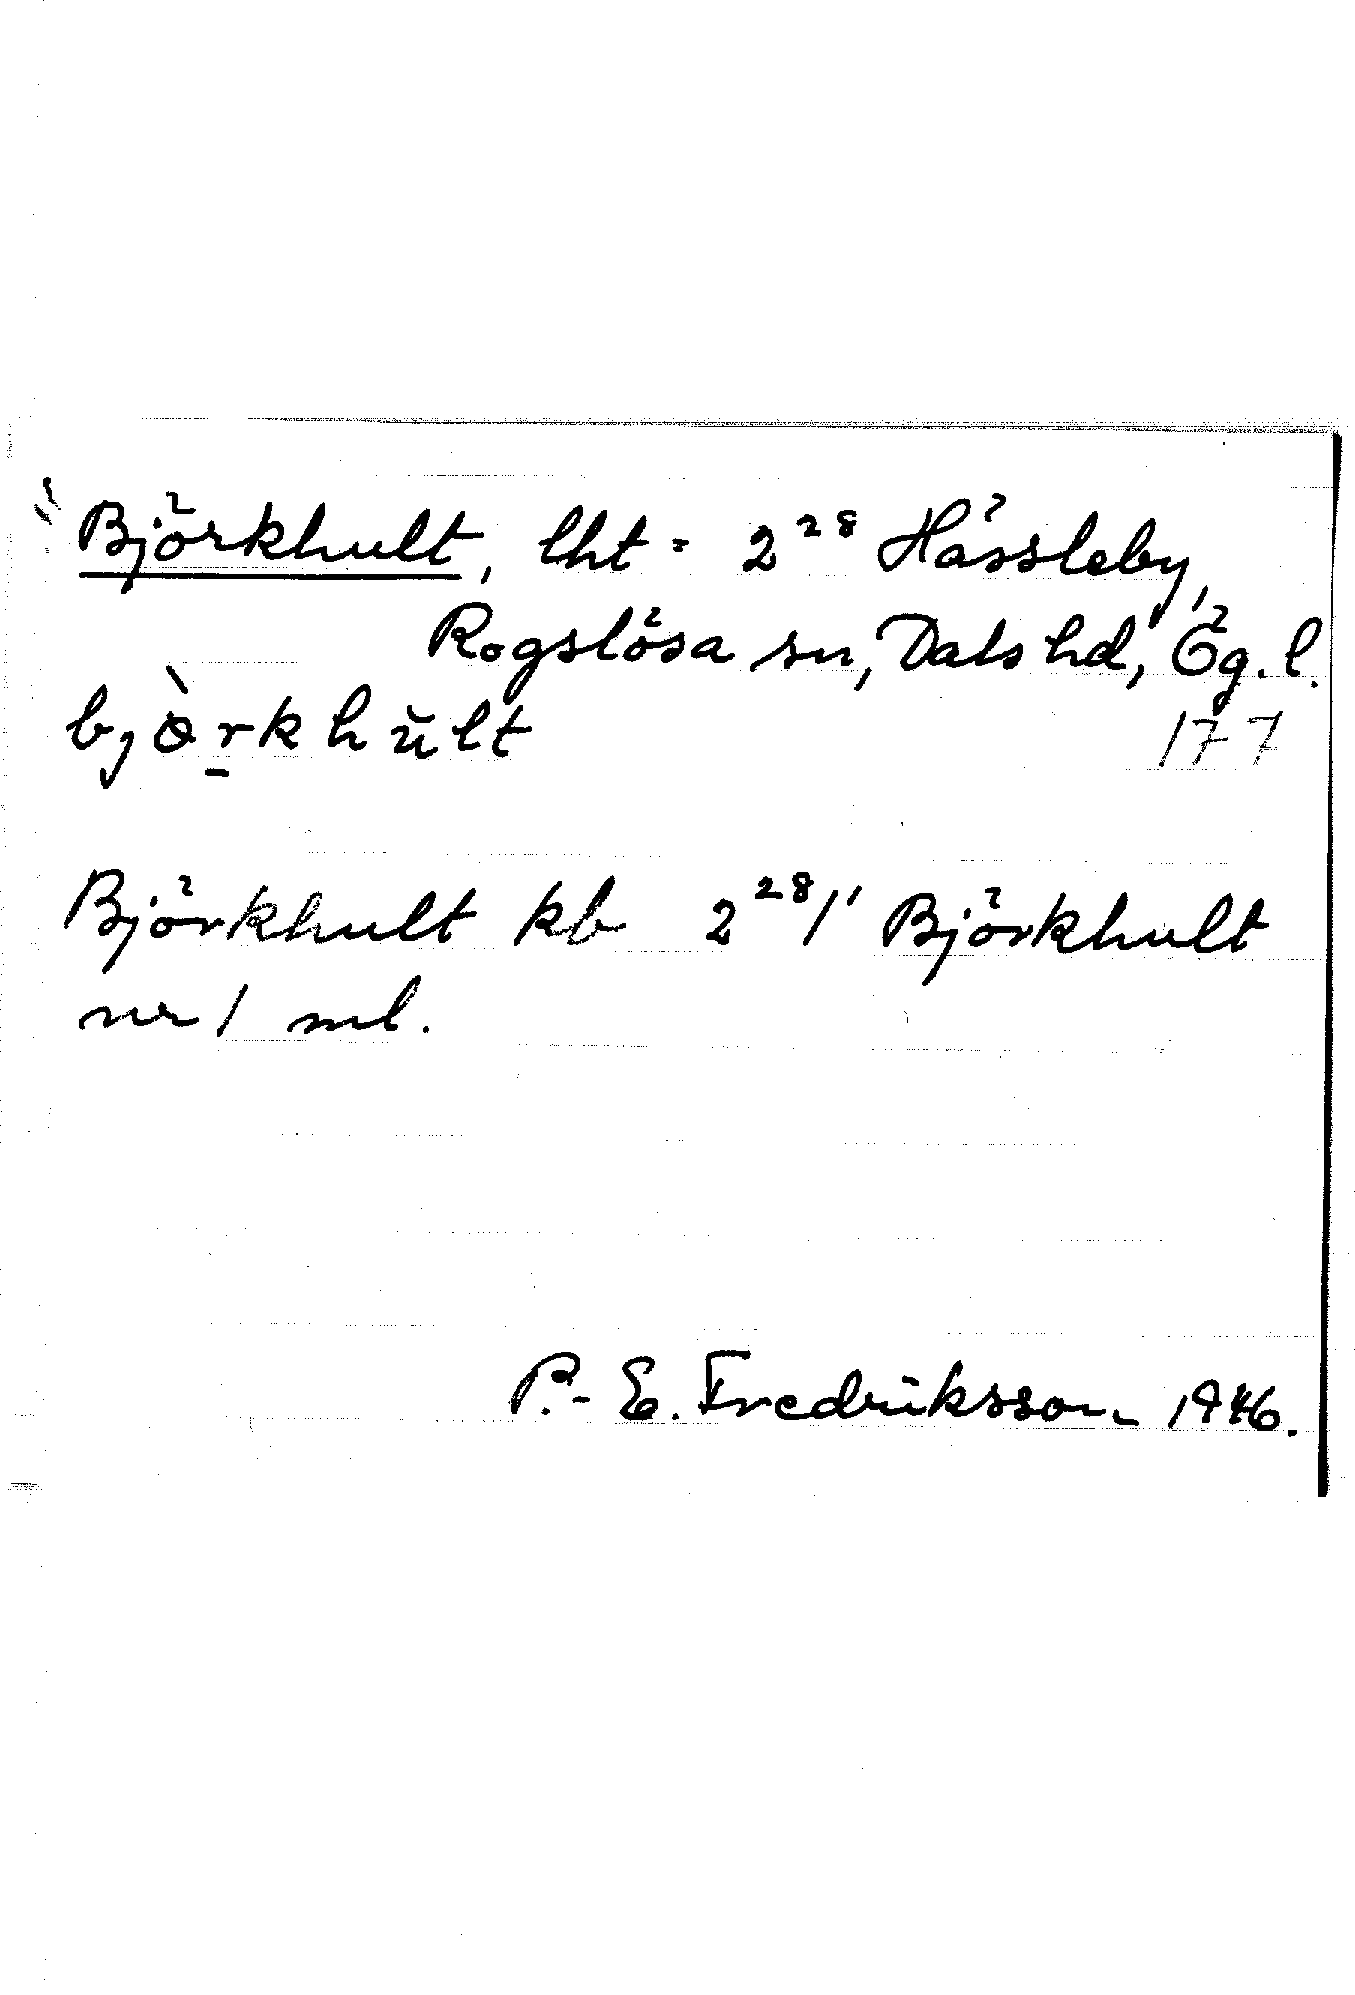 Björkhult, lht = 2²⁸ Hässleby,
Rogslösa sn, Dals hd, Ög. l.
bjò̤rkhŭlt
177
Björkhult kb 2²⁸/¹ Björkhult
nr 1 ml.
P.-E. Fredriksson 1946.